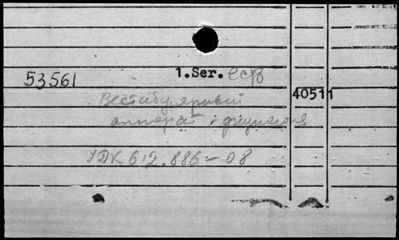 53561 1.Ser. есф
40511
Вестибулярный
аппарат: физиология
УДК 612.886=08